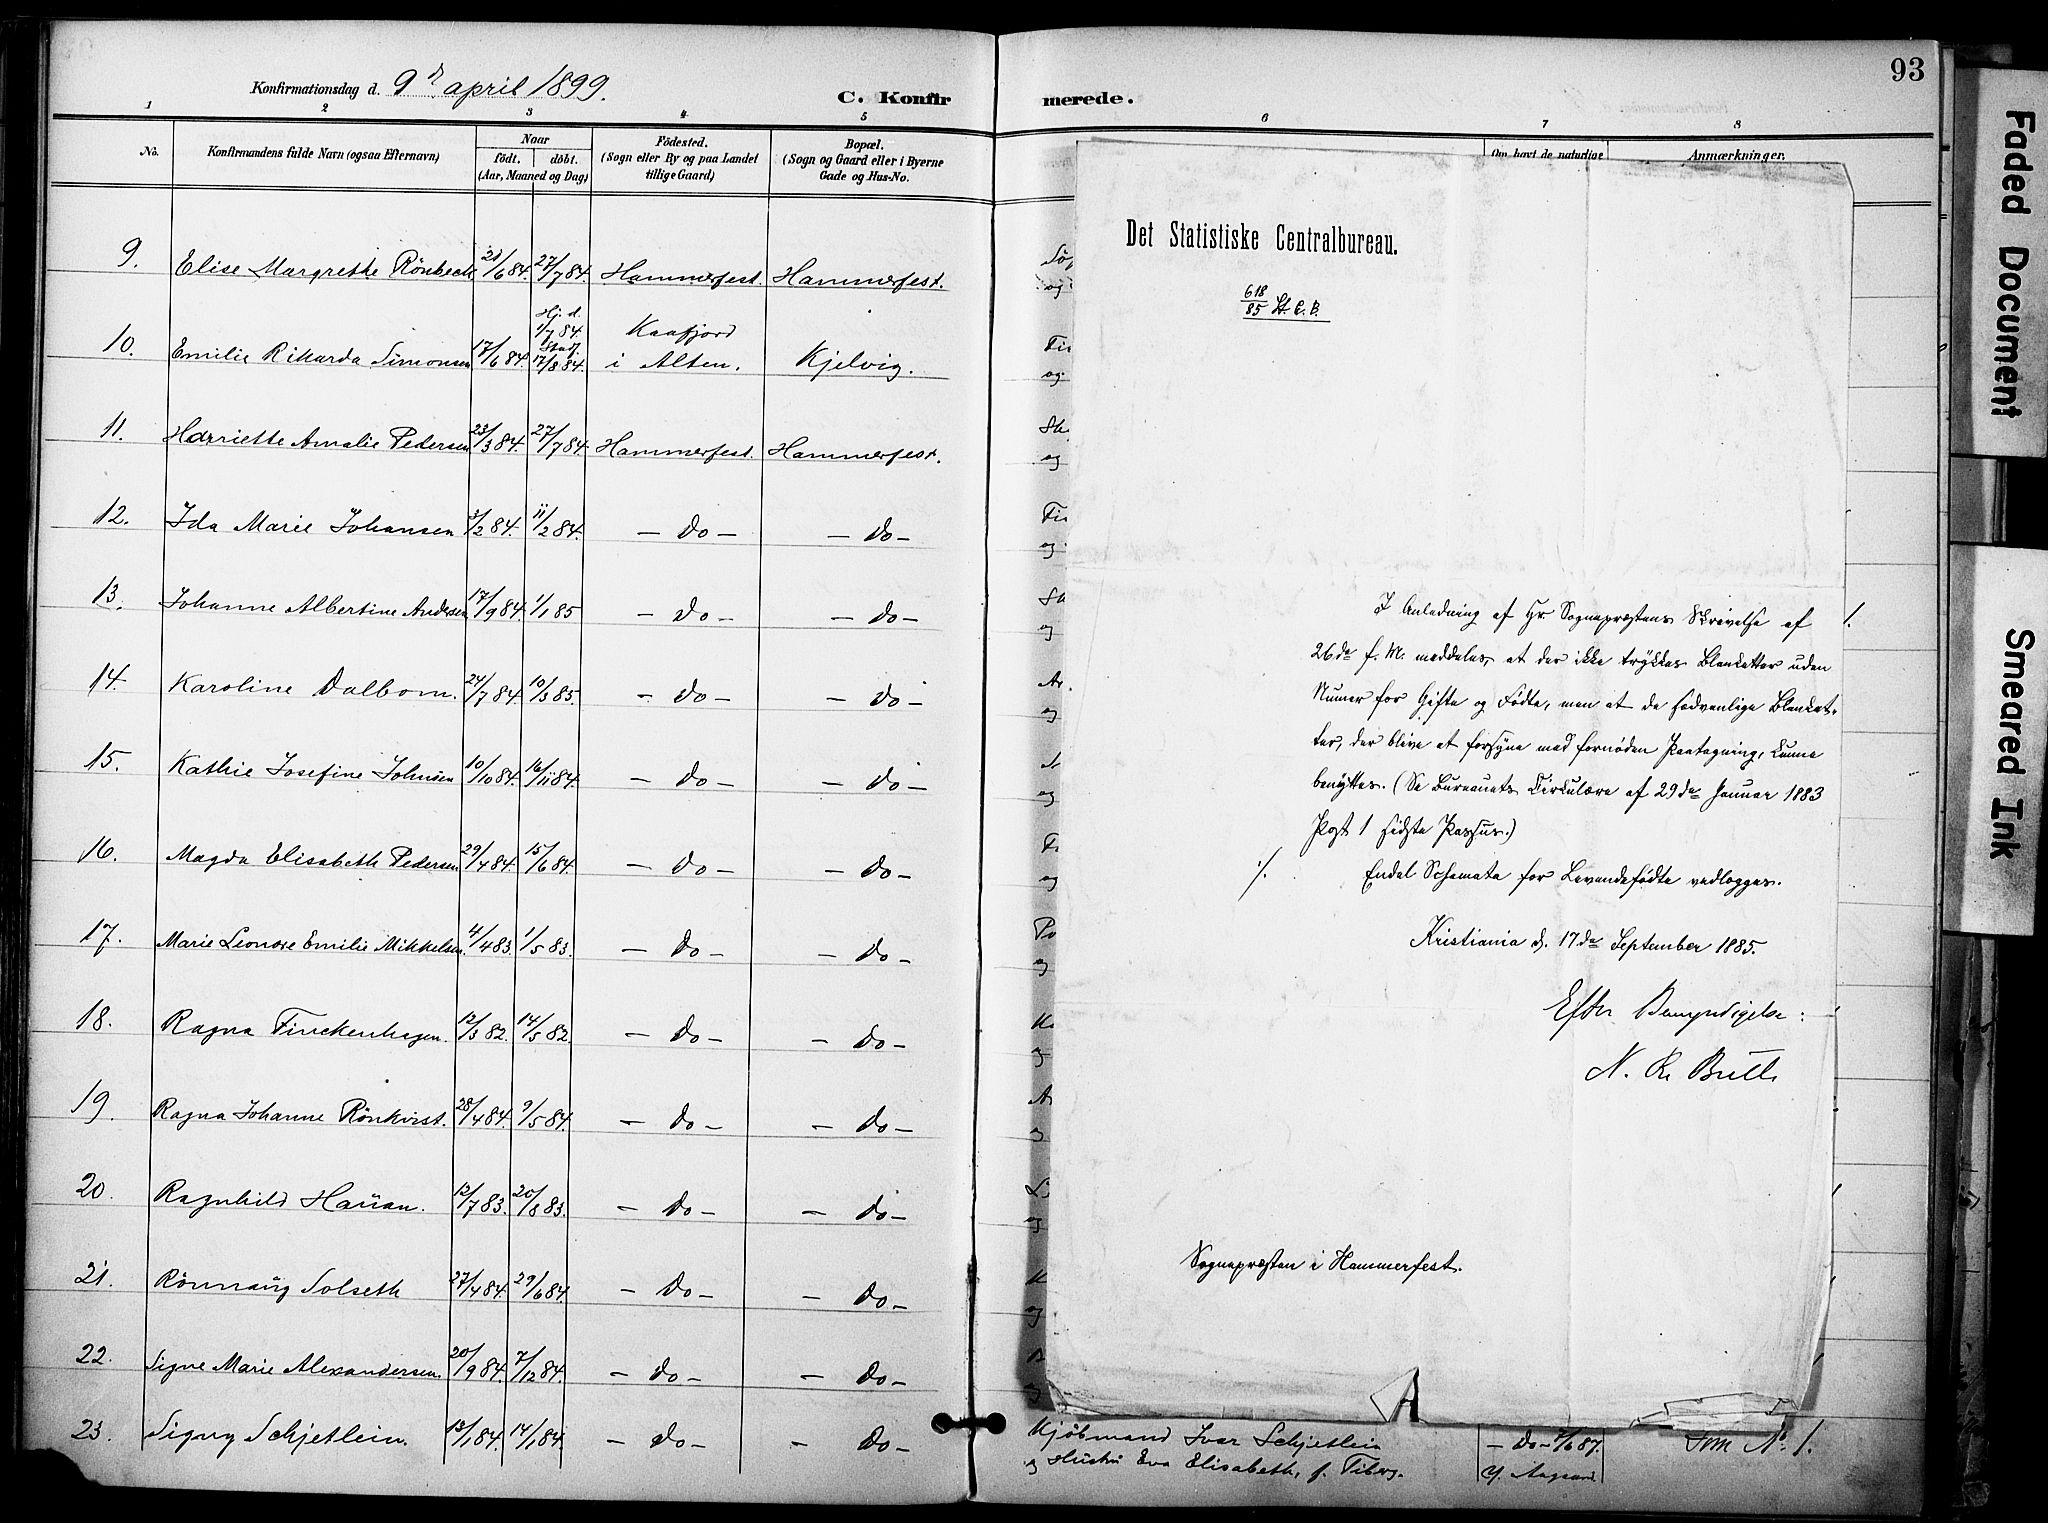 Konfirmationsdag d. 9de april 1899.
C. Konfir
1 2 3 4 5
No. Konfirmandens fulde Navn (ogsaa Efternavn) Naar født. døbt. (Aar, Maaned og Dag) Fødested. (Sogn eller By og paa Landet tillige Gaard) Bopæl. (Sogn og Gaard eller i Byerne Gade og Hus-No.
9. Elise Margrethe Rönbeck 21/6 84. 27/7 84. Hammerfest. Hammerfest.
10. Emilie Rikarda Simonsen 17/6 84. Hj. d. 1/7 84. Stadf. 17/8 84. Kaafjord i Alten. Kjelvig.
11. Harriette Amalie Pedersen 23/3 84. 27/7 84. Hammerfest. Hammerfest.
12. Ida Marie Johansen 3/2 84. 11/2 84. — Do — — Do —
13. Johanne Albertine Andersen 17/9 84. 1/1 85 — Do — — Do —
14. Karoline Dalbom. 24/7 84. 10/3 85. — Do — — Do —
15. Kathie Josefine Johnsen 10/10 84. 16/11 84. — Do — — Do —
16. Magda Elisabeth Pedersen 29/4 84. 15/6 84. — Do — — Do —
17. Marie Leonore Emilie Mikkelsen. 4/4 83. 1/5 83. — Do — — Do —
18. Ragna Finckenhagen. 12/3 82. 14/5 82. — Do — — Do —
19. Ragna Johanne Rönkvist. 28/4 84. 9/5 84. — Do — — Do —
20. Ragnhild Hauan. 12/7 83. 20/8 83. — Do — — Do —
21. Rönnaug Solseth 27/4 84. 29/6 84. — Do — — Do —
22. Signe Marie Alexandersen. 20/9 84. 7/12 84. — Do — — Do —
23. Signy Schjetlein. 13/1 84. 14/1 84. — Do — — Do —
merede.
93
6 7 8
Om havt de naturlige
Anmærkninger.
Det Statistiske Centralbureau.
618/85 St. C. B.
I Anledning af Hr. Sognepræstens Skrivelse af
26de f. M. meddeles, at der ikke trykkes Blanketter uden
Numer for Gifte og Födte, men at de sedvanlige Blanket-
ter, der blive at forsyne med fornöden Paategning, kunne
benyttes. (Se Bureauets Cirkulære af 29de Januar 1883
Post 1 sidste Passus.)
./. Endel Schemata for Levendefödte vedlægges.
Kristiania d. 17de September 1885.
Efter Bemyndigelse:
Sognepræsten i Hammerfest.
Kjöbmand Ivar Schjetlein — Do — Som No. 1.
og Hustru Eva Elisabeth, f. Tiberg. Aagaard
Faded Document
Smeared Ink